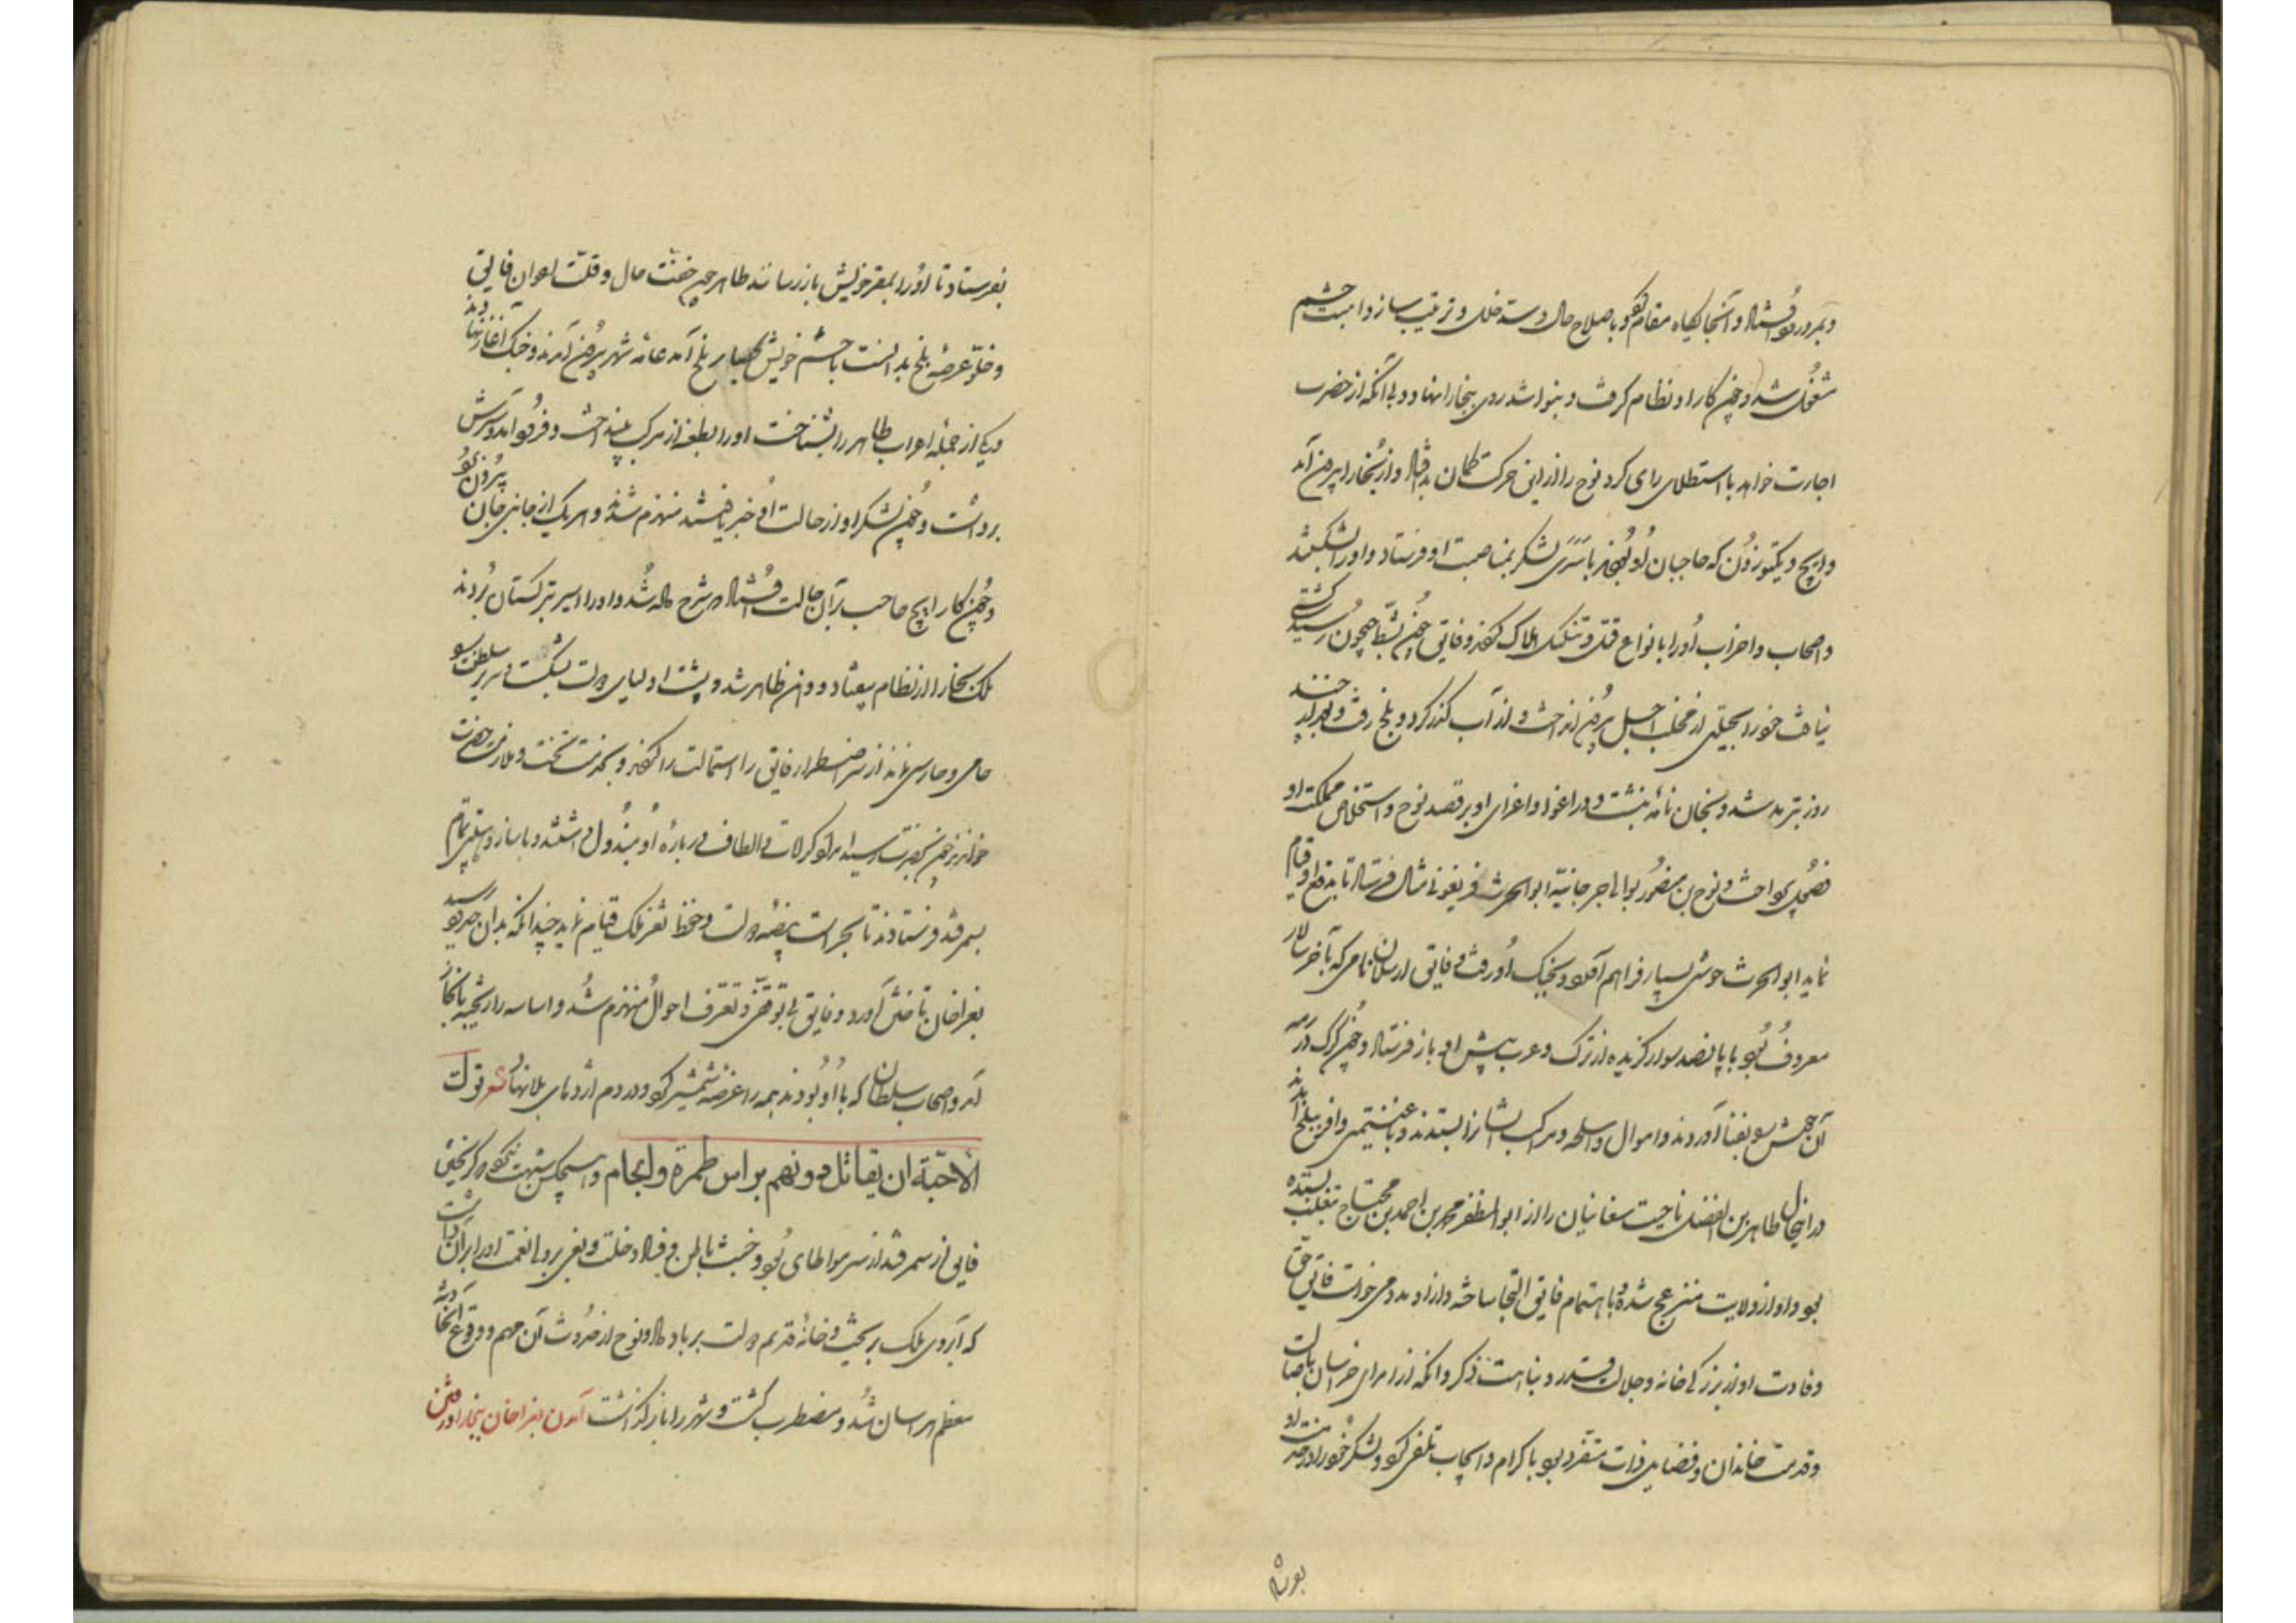 و بمرورود فرستاد و آنجایگاه مقام کرد و باصلاح حال و سد خلل و ترتیب ساز و اهبت حشم
مشغول شد و چون کار او نظام گرفت و بنوا شد روی ببخارا نهاد و بی آنکه از حضرت
اجازت خواهد یا استطلاع رای کرد نوح را از این حرکت گمان بد افتاد و از بخارا بیرون آمد
و اینج و بکتوزون که حاجبان او بودند با سری لشکر بمناصبت او فرستاد و او را بشکستند
و اصحاب و احزاب او را بانواع قتل و تنکیل هلاک کردند و فایق چون بشط جیحون رسید کشتی
نیافت خود را بحیلتی از مخلب اجل بیرون انداخت و از آب گذر کرد و ببلخ رفت و چند
روز بترمد شد و بخان نامه نبشت و در اغوا و اغرای او بر قصد نوح و استخلاص مملکت او
فصول پرداخت و نوح بن منصور بوالی جرجانیه ابوالحرث فریغونی مثال فرستاد تا بدفع او قیام
نماید ابوالحرث حوشی بسیار فراهم آورد و بجنگ او رفت و فایق ارسلان نامی که بآخر سالار
معروف بود با پانصد سوار گزیده از ترک و عرب پیش او باز فرستاد و چون گرگ در رمه
آن حوش بیفتاد آوردند و اموال و اسلحه و مراکب ایشان را بستدند و با غنیمتی وافر ببلخ آمدند
در این حال طاهر بن الفضل ناحیت صغانیان را از ابوالمظفر محمد بن احمد بن محتاج بتغلب بستده
بود و او از ولایت منزعج شده و باهتمام فایق التجا ساخته و از او مدد می خواست فایق حق
وفادت او از بزرگی خانه و جلالت قدر و نباهت ذکر و آنکه از امرای خراسان باصالت
و قدمت خاندان و فضایل ذات متفرد بود باکرام و ایجاب تلقی کرد و لشکر خود را در خدمت او
بفرستاد تا او را بمقر خویش باز رسانند طاهر چون خفت حال و قلت اعوان فایق
و خلو عرصه بلخ بدانست با حشم خویش بحصار بلخ آمد عامه شهر بیرون آمدند و جنگ آغاز نهادند
و یکی از جمله اعراب طاهر را بشناخت او را بطعنه از مرکب بینداخت و فرود آمد و سرش
برداشت و چون لشکر او از حالت او خبر یافتند منهزم شدند و هر یک از جانبی جان بیرون برد
و چون کار اینج حاجب بر آن حالت افتاد که شرح داده شد و او را اسیر بترکستان بردند
ملک بخارا از نظام بیفتاد و وهن ظاهر شد و پشت اولیای دولت بشکست و سریر سلطنت را
حامی و حارسی نماند از سر اضطرار فایق را استمالت کردند و بخدمت تخت و ملازمت حضرت
خواندند چون بحضرت رسید ابواب کرامات و الطاف در باره او مبذول داشتند و با ساز و اهبتی تمام
بسمرقند فرستادند تا بحراست بیضه دولت و حفظ ثغر ملک قیام نماید چندانکه بدان حدود رسید
بغراخان تاختن آورد و فایق بی توقفی و تعرف احوال منهزم شد و اساسه را ریخته ببخارا
آمد و اصحاب سلطان که با او بودند همه را عرضه شمشیر کرد و در دم اژدهای بلا نهاد شعر تولت
الأحبّة ان يقاتل دونهم برأس طمرة ولجام و هیچکس را شبهت نبود که گریختن
فایق از سمرقند از سر مواطاة بود و خبث باطن و فساد دخلت و بغی بر ولی نعمت او را بر آن داشت
که آبروی ملک بریخت و خانه قدیم دولت بر باد داد و نوح از حدوث آن مهم و وقوع آن حادثه
معظم هراسان شد و مضطرب گشت و شهر را باز گذاشت آمدن بغراخان ببخارا و رفتن